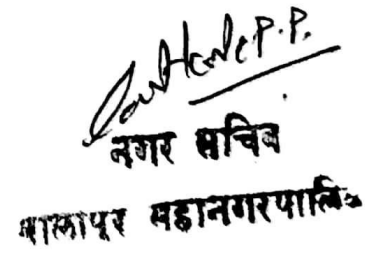 P.P.
नगर सचिव
सोलापूर महानगरपालिका